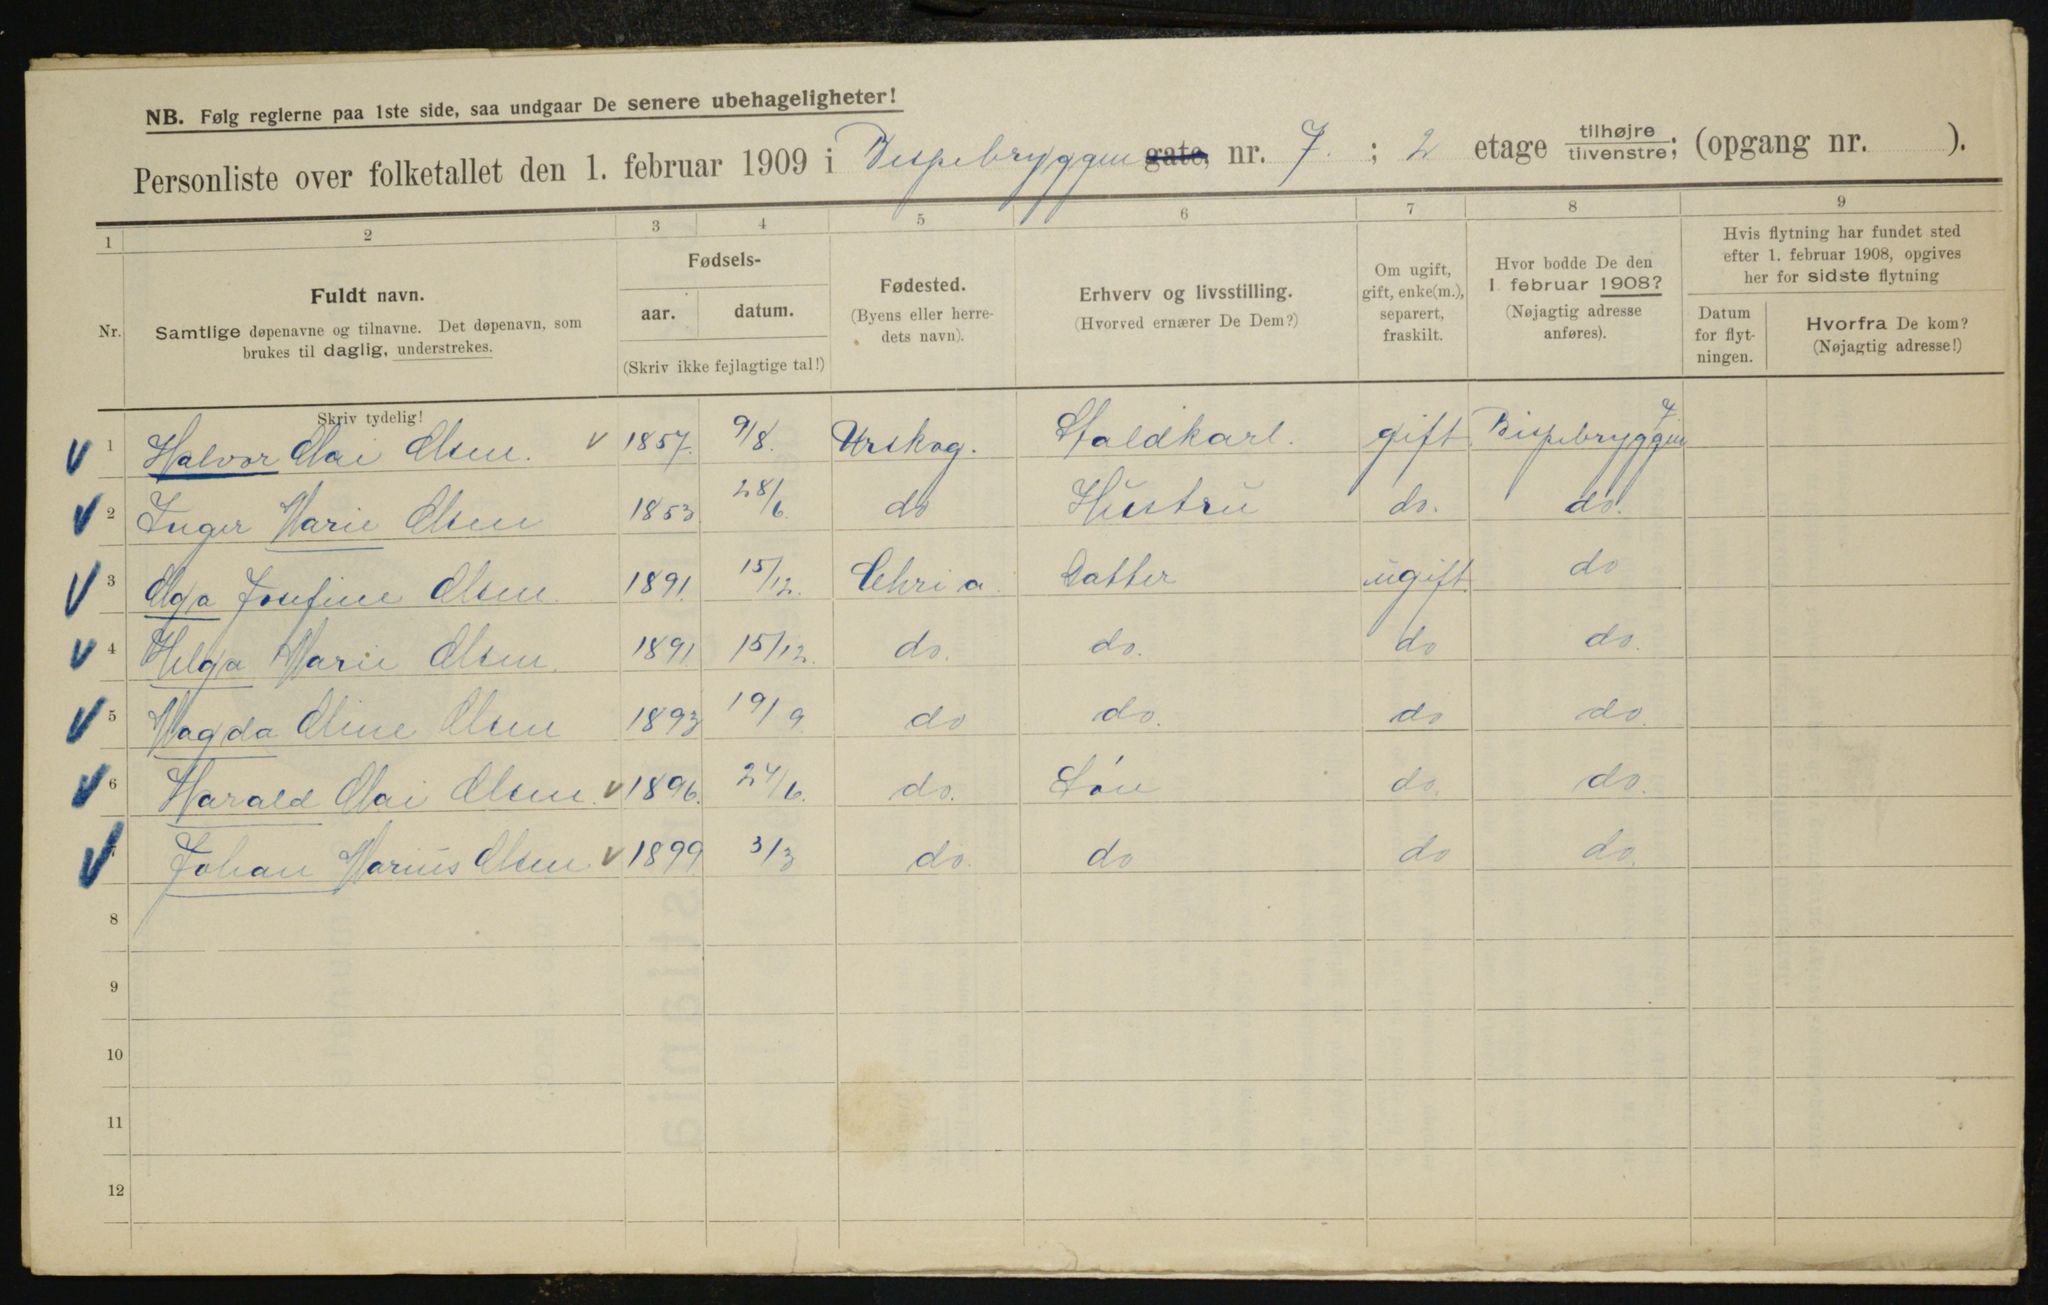 NB. Følg reglerne paa 1ste side, saa undgaar De senere ubehageligheter!
Personliste over folketallet den 1. februar 1909 i Bispebryggen gate, nr. 7. ; 2 etage tilhøjre/tilvenstre; (opgang nr. ).
1 2 3 4 5 6 7 8 9
Nr.
Fuldt navn.
Samtlige døpenavne og tilnavne. Det døpenavn, som
brukes til daglig, understrekes.
Skriv tydelig!
Fødsels-
aar. datum.
(Skriv ikke fejlagtige tal!)
Fødested.
(Byens eller herre-
dets navn).
Erhverv og livsstilling.
(Hvorved ernærer De Dem?)
Om ugift,
gift, enke(m.),
separert,
fraskilt.
Hvor bodde De den
1. februar 1908?
(Nøjagtig adresse
anføres).
Hvis flytning har fundet sted
efter 1. februar 1908, opgives
her for sidste flytning
Datum
for flyt-
ningen.
Hvorfra De kom?
(Nøjagtig adresse!)
1 Halvor Olai Olsen. 1857. 9/8. Urskog. Staldkarl. gift Bispebryggen 7
2 Inger Marie Olsen 1853 28/6. do Hustru do. do.
3 Olga Josefine Olsen 1891. 15/12. Chria. Datter ugift. do
4 Helga Marie Olsen. 1891. 15/12. do. do. do do.
5 Magda Oline Olsen 1893 19/9. do do. do do.
6 Harald Olai Olsen. 1896. 24/6. do. Søn do. do.
7 Johan Marius Olsen 1899 3/3 do. do do do.
8
9
10
11
12